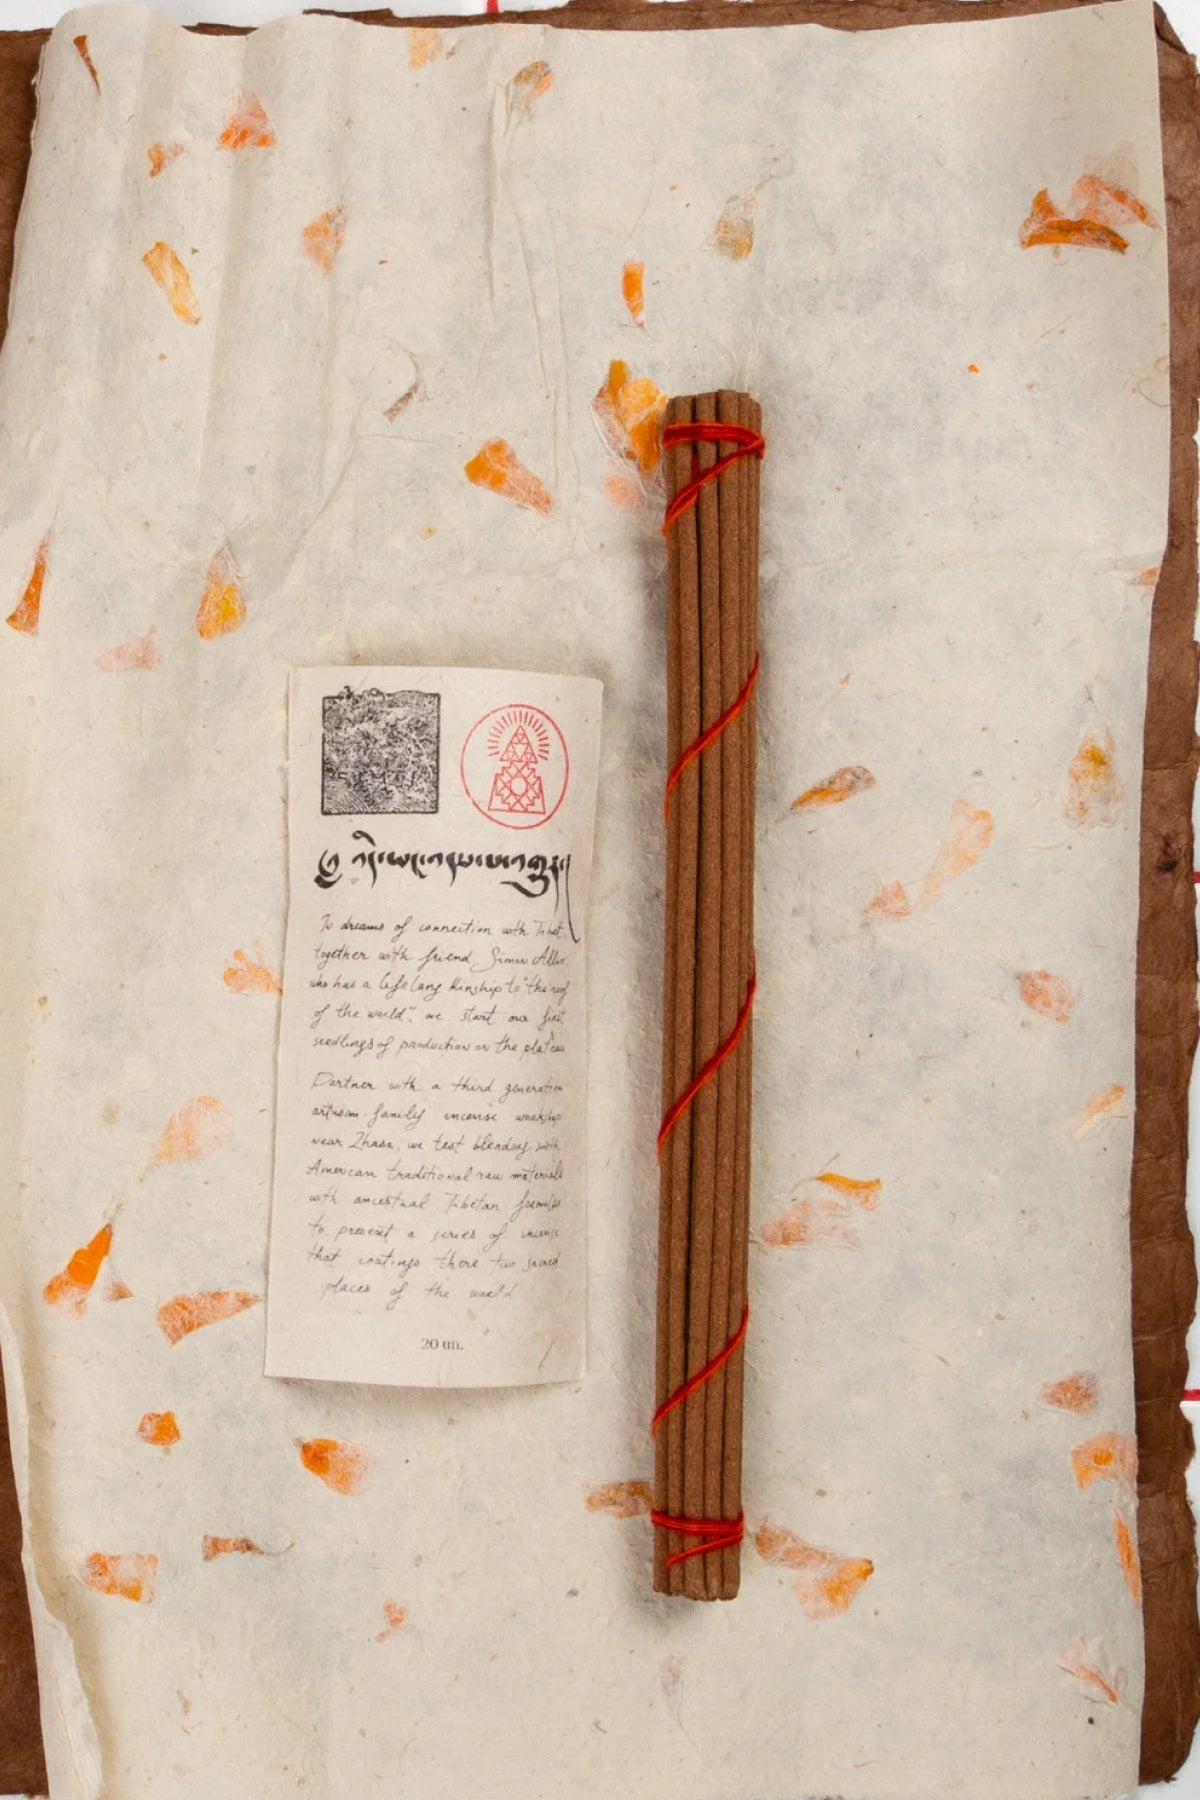 In dreams of connection with Tibet,
together with friend Simon Allix
who has a lifelong kinship to "the roof
of the world", we start our first
seedlings of production on the plateau
Partner with a third generation
artisan family incense workshop
near Lhasa, we test blending with
American traditional raw materials
with ancestral Tibetan formulas
to present a series of incense
that these two sacred
places of the world
20 un.